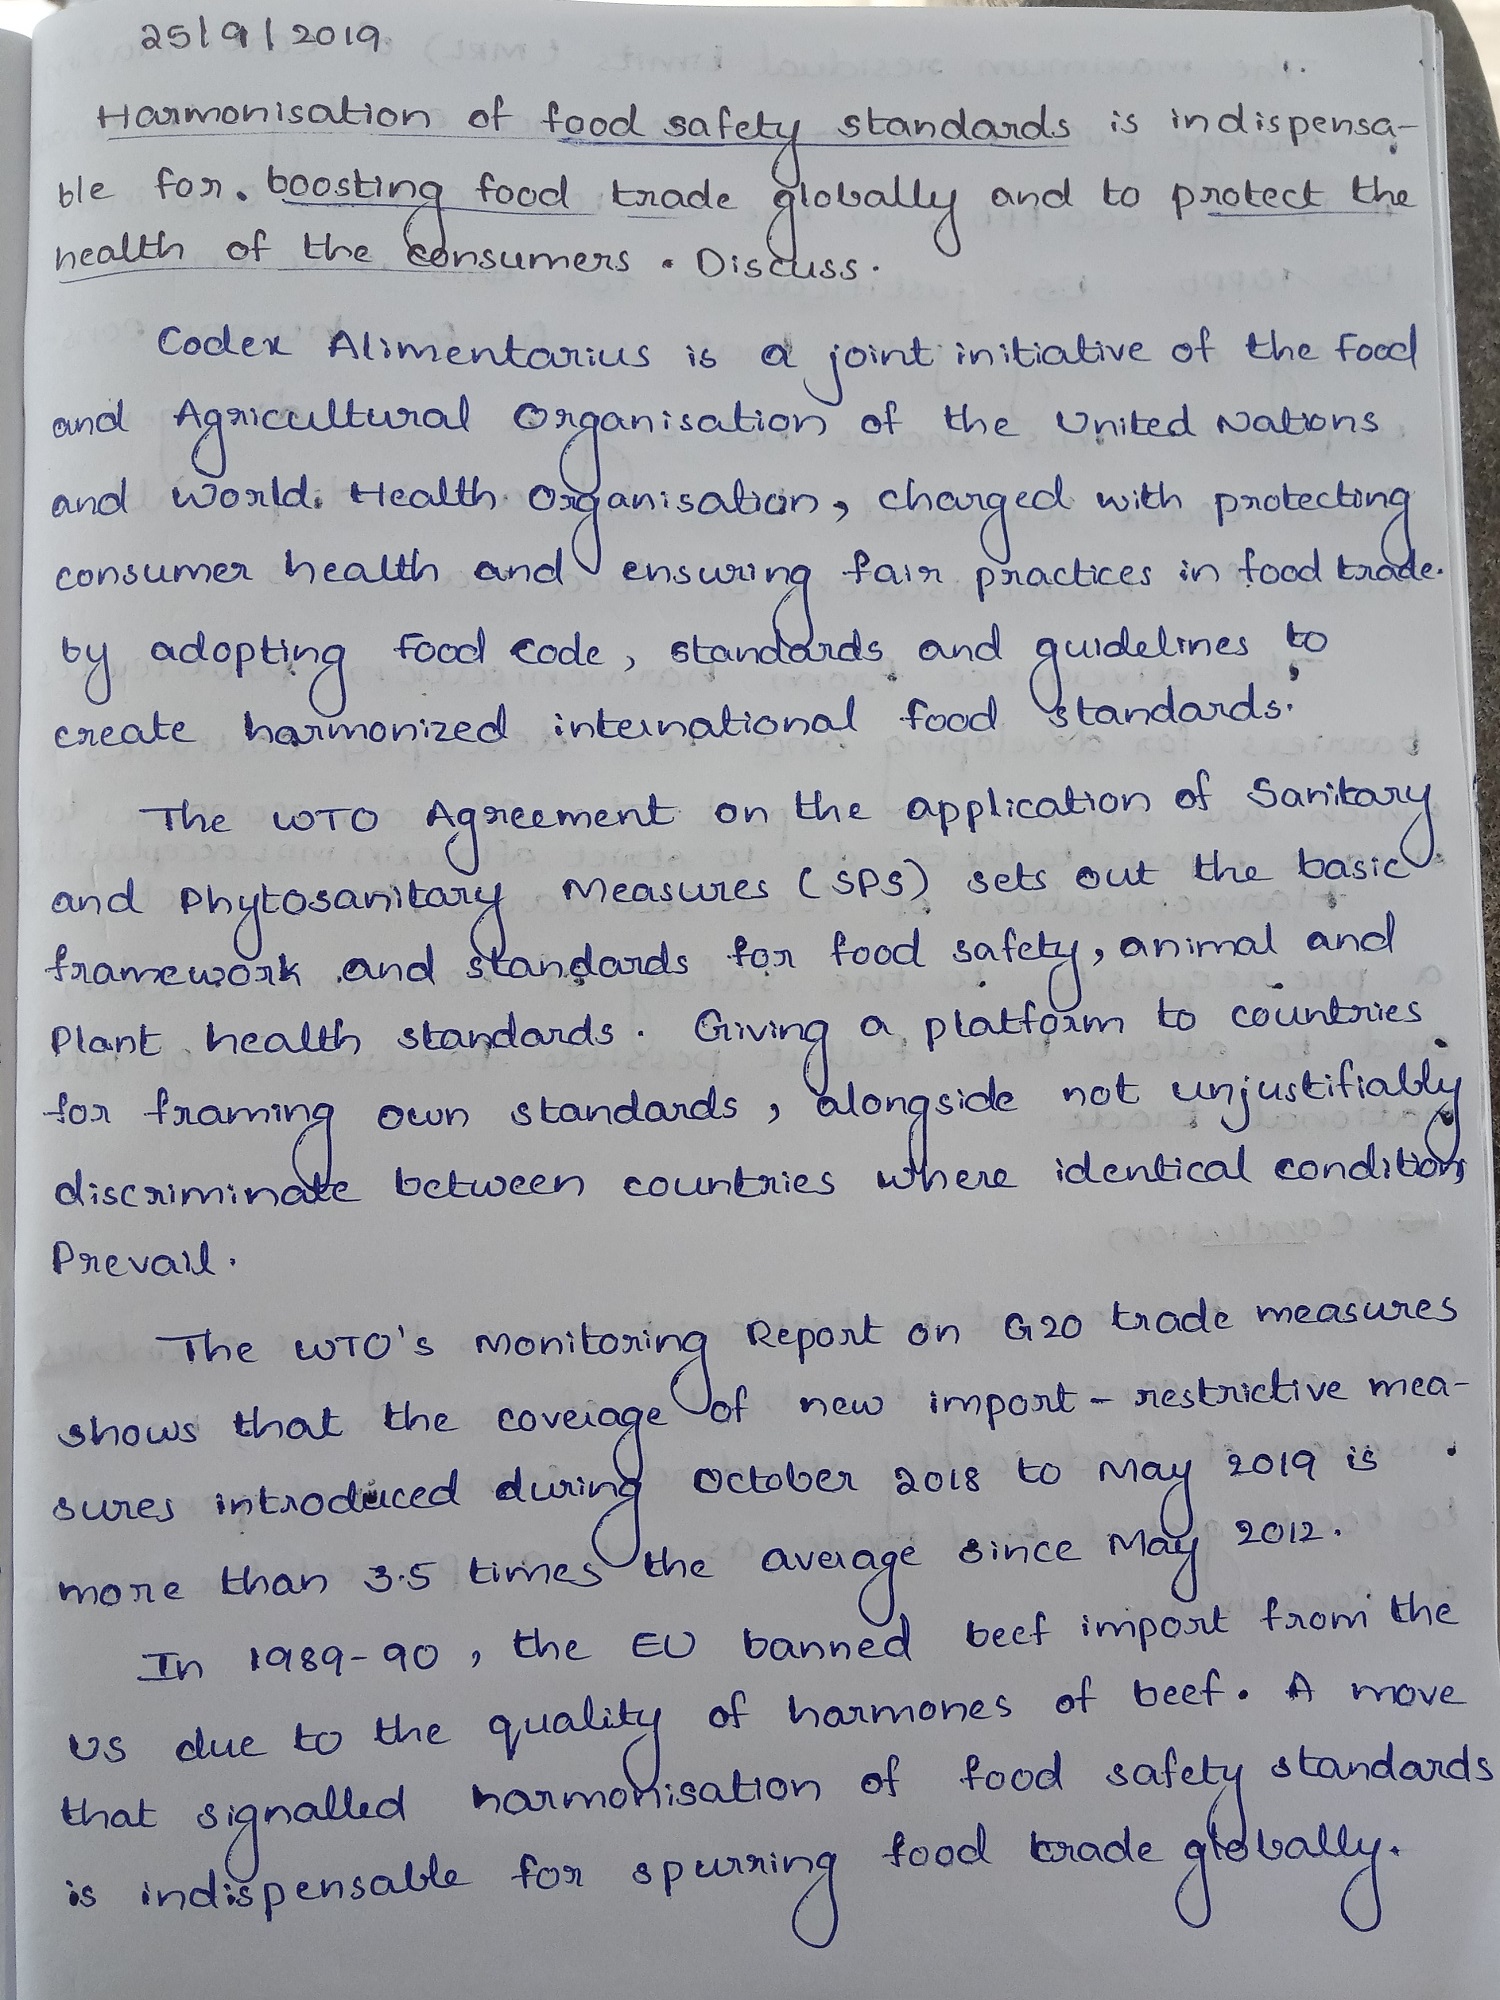 25/9/2019
Harmonisation of food safety standards is indispensa-
ble for. boosting food trade globally and to protect the
health of the consumers. Discuss.
Codex Alimentarius is a joint initiative of the Food
and Agricultural Organisation of the United Nations
and World. Health Organisation, charged with protecting
consumer health and ensuring fair practices in food trade.
by adopting food code, standards and guidelines to
create harmonized international food standards.
The WTO Agreement on the application of Sanitary
and Phytosanitary Measures (SPS) sets out the basic
framework and standards for food safety, animal and
Plant health standards. Giving a platform to countries
for framing own standards, alongside not unjustifiably
discriminate between countries where identical conditions
Prevail.
The WTO's Monitoring Report on G20 trade measures
shows that the coverage of new import-restrictive mea-
sures introduced during October 2018 to May 2019 is
more than 3.5 times the average since May 2012.
In 1989-90, the EU banned beef import from the
US due to the quality of harmones of beef. A move
that signalled harmonisation of food safety standards
is indispensable for spurring food trade globally.